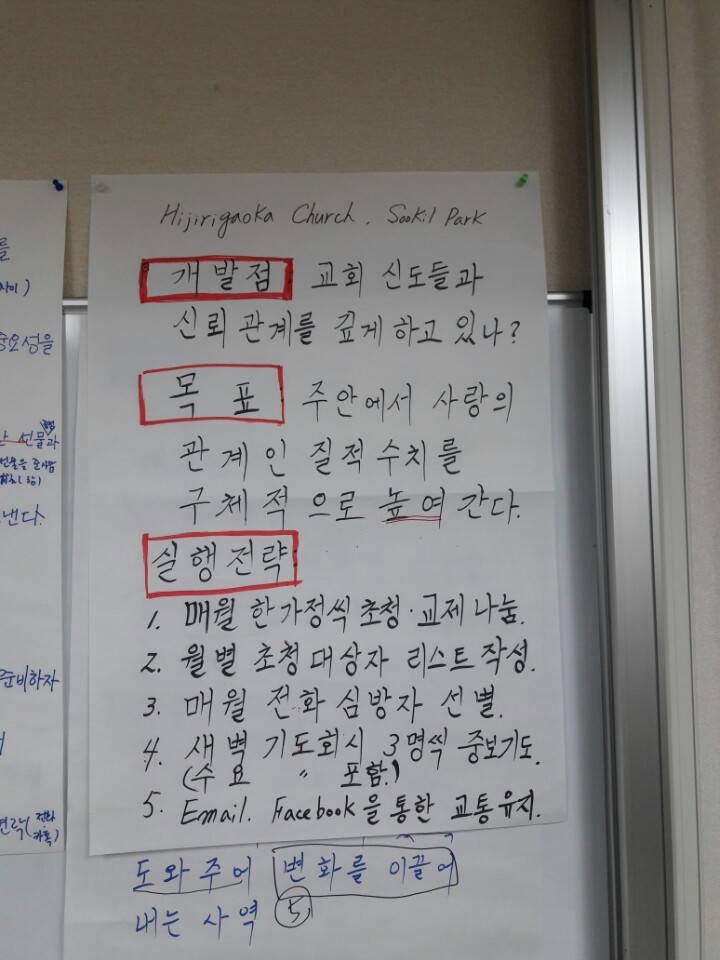 Hijirigaoka Church. Sookil Park
개발점: 교회 신도들과
신뢰 관계를 깊게 하고 있나?
목표: 주안에서 사랑의
관계인 질적 수치를
구체적으로 높여 간다.
실행전략:
1. 매월 한가정씩 초청·교제 나눔.
2. 월별 초청대상자 리스트작성.
3. 매월 전화 심방자 선별.
4. 새벽 기도회시 3명씩 중보기도.
(수요 〃 포함.)
5. Email. Facebook을 통한 교통유지.
도와주어 변화를 이끌어
내는 사역 ⑤
를
중요성을
선물과
낸다.
준비하자
연락(전화
카톡)